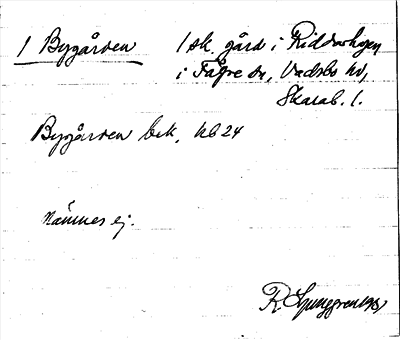 1 Bygården 1 sk. gård i Riddarhagen
i Fågre sn, Vadsbo hd,
Skarab. l.
Bygården bek. hb 24
Nämnes ej.
R. Ljunggren